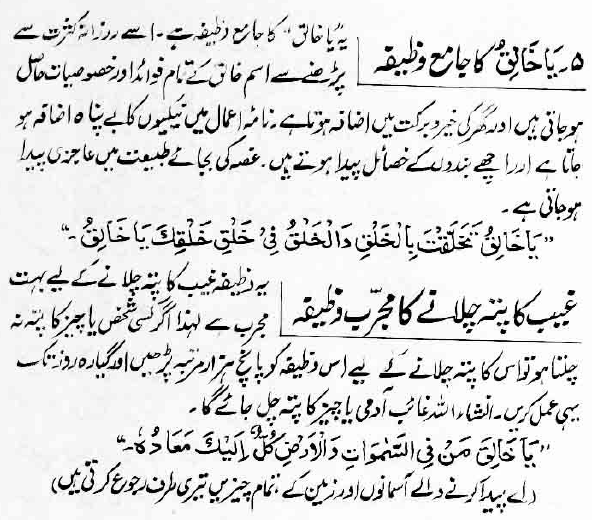 ۵۔ یَا خَالِقُ کا جامع وظیفہ
یہ ”یا خالق“ کا جامع وظیفہ ہے۔ اسے روزانہ کثرت سے
پڑھنے سے اسم خالق کے تمام فوائد اور خصوصیات حاصل
ہوجاتی ہیں اور گھر کی خیر و برکت میں اضافہ ہوتا ہے۔ نامہ اعمال میں نیکیوں کا بے پناہ اضافہ ہو
جاتا ہے اور اچھے بندوں کے خصائل پیدا ہوتے ہیں۔ غصہ کی بجائے طبیعت میں عاجزی پیدا
ہوجاتی ہے۔
”یَاخَالِقُ تَخَلَّقْتَ بِالْخَلْقِ وَالْخَلْقُ فِیْ خَلْقِ خَلْقِكَ یَاخَالِقُ۔“
غیب کا پتہ چلانے کا مجرّب وظیفہ
یہ وظیفہ غیب کا پتہ چلانے کے لیے بہت
مجرب ہے لہٰذا اگر کسی شخص یا چیز کا پتہ نہ
چلتا ہو تو اس کا پتہ چلانے کے لیے اس وظیفہ کو پانچ ہزار مرتبہ پڑھیں اور گیارہ روز تک
یہی عمل کریں۔ انشاء اللہ غائب آدمی یا چیز کا پتہ چل جائے گا۔
”یَاخَالِقَ مَنْ فِی السَّمٰوَاتِ وَالْاَرْضِ کُلٌّ اِلَیْكَ مَعَادُہٗ۔“
(اے پیدا کرنے والے آسمانوں اور زمین کے، تمام چیزیں تیری طرف رجوع کرتی ہیں)